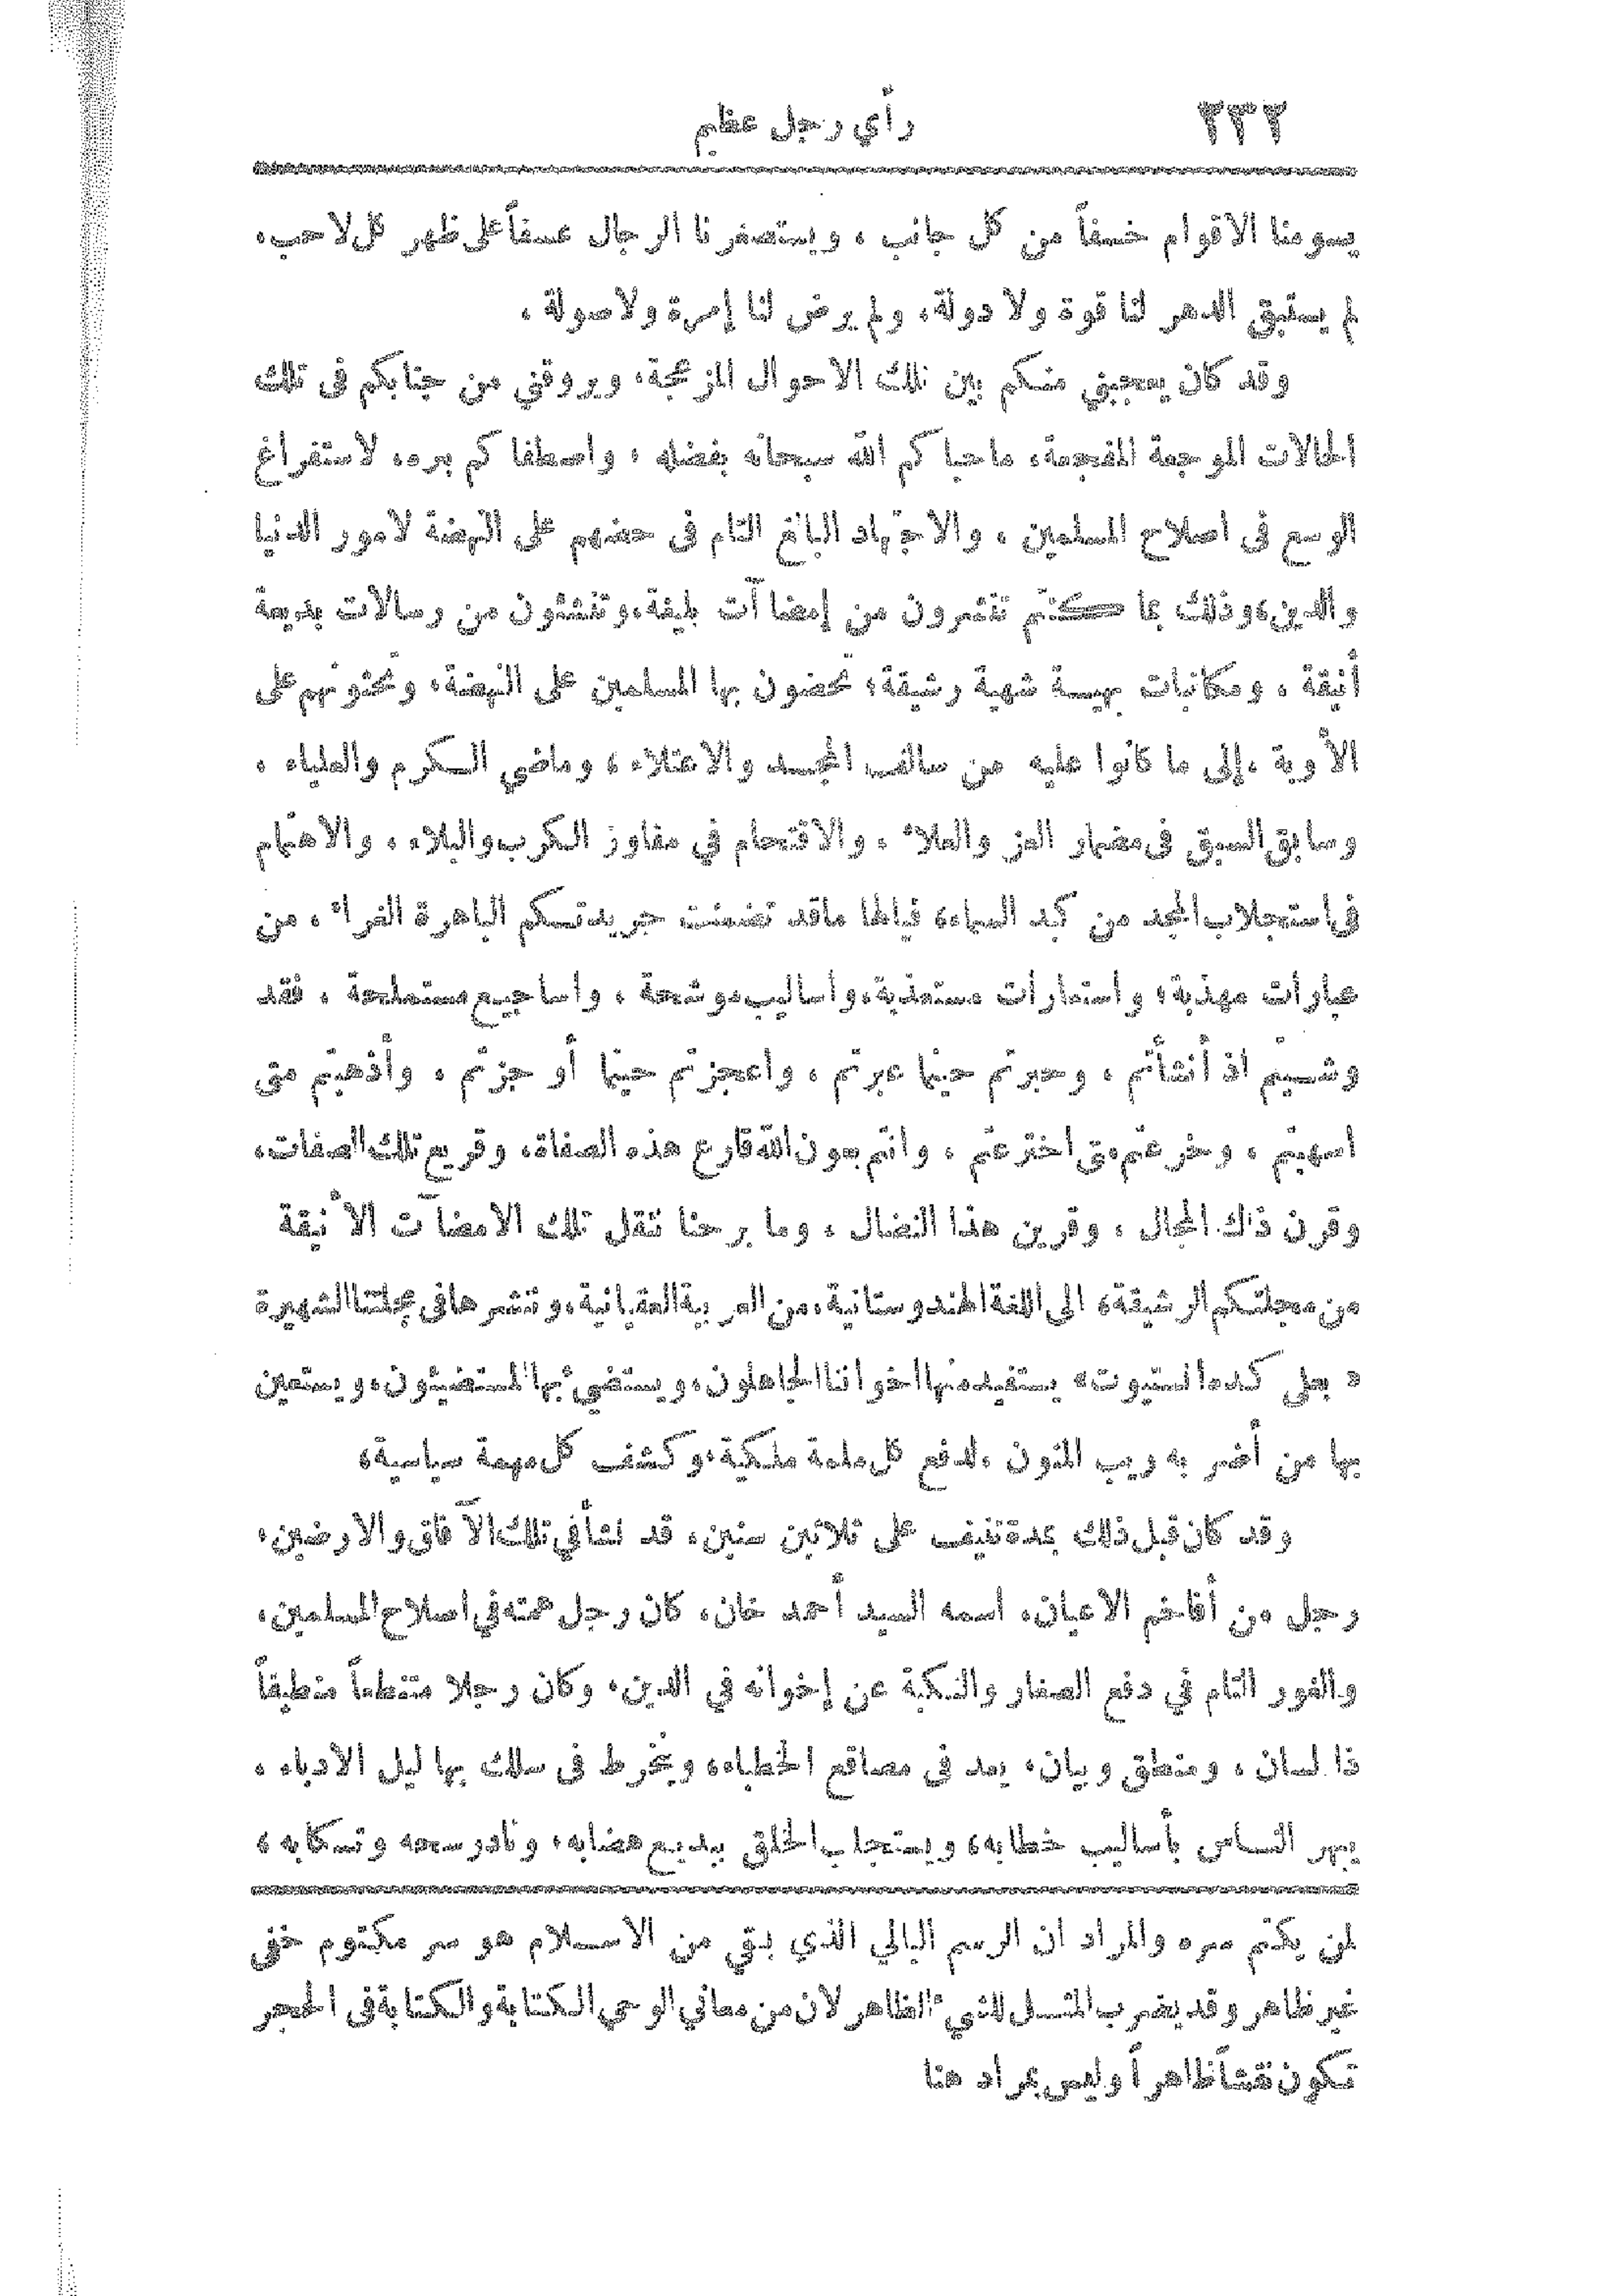 ٢٣٢ رأي رجل عظيم
يسومنا الاقوام خسفاً من كل جانب ، ويستصغرنا الرجال عسفاً على ظهر كل لاحب،
لم يستبق الدهر لنا قوة ولا دولة، ولم يرض لنا إمرة ولا صولة ،
وقد كان يعجبني منكم بين تلك الاحوال المزعجة، ويروقني من جنابكم فى تلك
الحالات الموجعة المفجعة، ما حباكم الله سبحانه بفضله ، واصطفاكم ببره، لاستفراغ
الوسع فى اصلاح المسلمين ، والاجتهاد البالغ التام فى حضهم على النهضة لامور الدنيا
والدين، وذلك بما كنتم تنشرون من إمضاآت بليغة، وتنشئون من رسالات بديعة
أنيقة ، ومكاتبات بهيــة شهية رشيقة، تحضون بها المسلمين على النهضة، وتحثونهم على
الأوبة ، إلى ما كانوا عليه من سالف المجــد والاعتلاء ، وماضي الــكرم والعلياء ،
وسابق السبق فى مضمار العز والعلاء ، والاقتحام في مفاوز الكرب والبلاء ، والاهتمام
فى استجلاب المجد من كبد السماء، فيالها ما قد تضمنت جريدتــكم الباهرة الغراء ، من
عبارات مهذبة، واستعارات مستعذبة، وأساليب موشحة ، واساجيع مستملحة ، فقد
وشــيتم اذ أنشأتم ، وحبرتم حينما عبرتم ، واعجزتم حينما أو جزتم ، وأذهبتم متى
اسهبتم ، وخرعتم متى اخترعتم ، وانتم بعون الله قارع هذه الصفاة، وقريع تلك الصفات،
وقرن ذاك المجال ، وقرين هذا النضال ، وما برحنا ننقل تلك الامضاآت الأنيقة
من مجلتــكم الرشيقة، الى اللغة الهندوستانية، من العربية العقيانية، وننشرها فى مجلتنا الشهيرة
« بعلى كده انستيوت» يستفيد منها اخواننا الجاهلون، ويستضيء بها المستضيئون، ويستعين
بها من أضر به ريب المنون ، لدفع كل ملمة ملــكية، وكشف كل مهمة سياسية،
وقد كان قبل ذلك بمدة تنيف على ثلاثين سنين، قد نشأ في تلك الآفاق والارضين،
رجل من أفاخم الاعيان، اسمه السيد أحمد خان، كان رجل همته في اصلاح المسلمين،
والفور التام في دفع الصغار والنكبة عن إخوانه في الدين، وكان رجلا متنطعاً منطيقاً
ذا لسان ، ومنطق وبيان، يعد فى مصاقع الخطباء، وينخرط فى سلك بهاليل الادباء ،
يبهر النــاس بأساليب خطابه، ويستجلب الخلق ببديع هضابه، ونادر سحه وتسكابه ،
لمن يكتم سره والمراد ان الرسم البالي الذي بقي من الاســلام هو سر مكتوم خفي
غير ظاهر وقد يضرب المثــل للشيء الظاهر لان من معاني الوحي الكتابة والكتابة فى الحجر
تــكون نقشاً ظاهراً وليس بمراد هنا